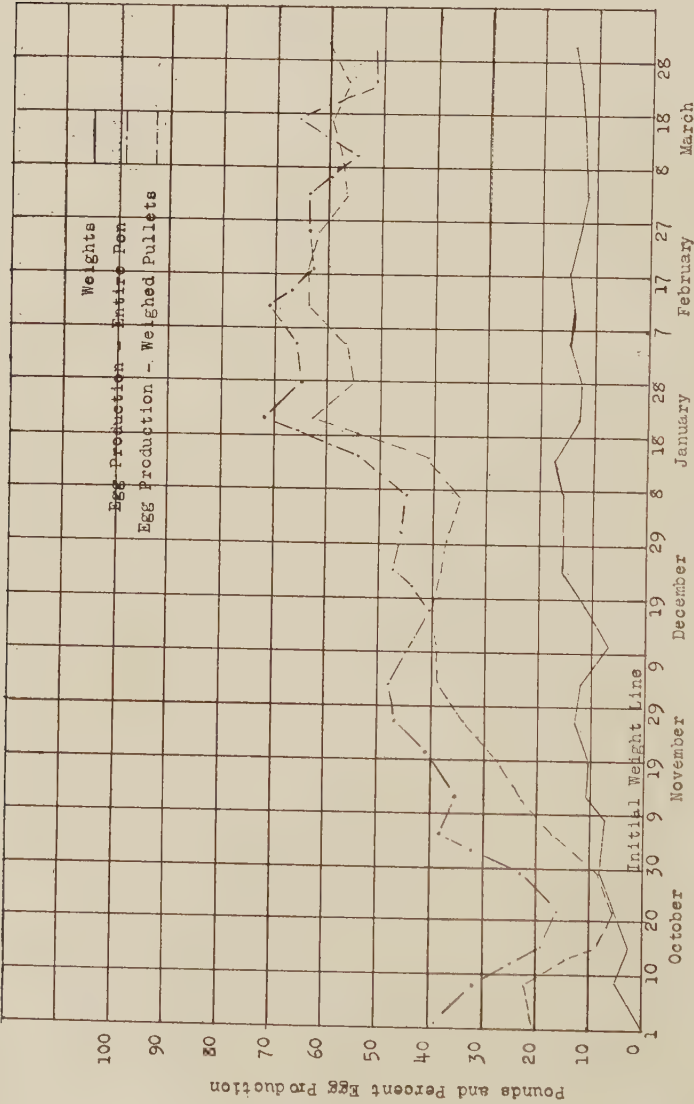 Weights
Egg Production - Entire Pen
Egg Production - Weighed Pullets
Pounds and Percent Egg Production
100
90
80
70
60
50
40
30
20
10
0
Initial Weight Line
1 10 20 30 9 19 29 9 19 29 8 18 28 7 17 27 8 18 28
October November December January February March